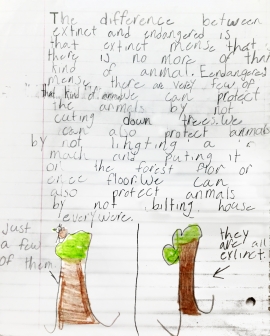 The difference between
extinct and endangered is
that extinct mense that
there is no more of that
kind of animal. Eendangered
mense there are very few of
that kind of animal We can protect
the animals by not
cuting down trees. We
can also protect animals
by not lingting a
mach and puting it
on the forest flor or
floor. We can
also protect animals
by not bilting house
everywere.
Just
a few
of them
they
are all
extinct.